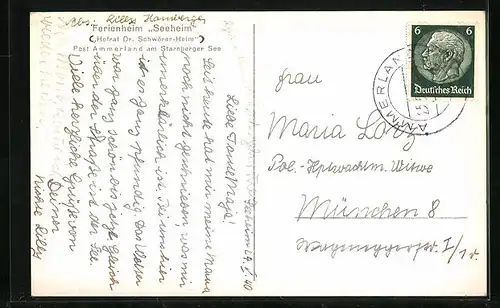 Abs: Lilly Hamberger
Ferienheim „Seeheim"
(Hofrat Dr. Schwörer-Heim)
Post Ammerland am Starnberger See
Liebe Tante Maja!
Seit heute hat mir meine Mama
noch nicht geschrieben, was mir
unerklärlich ist. Bei uns hier
ist es ganz pfundig. Das Wetter
war ganz schön bis jetzt. Gleich
über der Straße ist der See.
Viele herzliche Grüße von
Deiner
Nichte Lilly
6 6
Deutsches Reich
AMMERLAN
Frau
Maria Lotz
Pol.-Hptwachtm. Witwe
München 8
I/1 r.